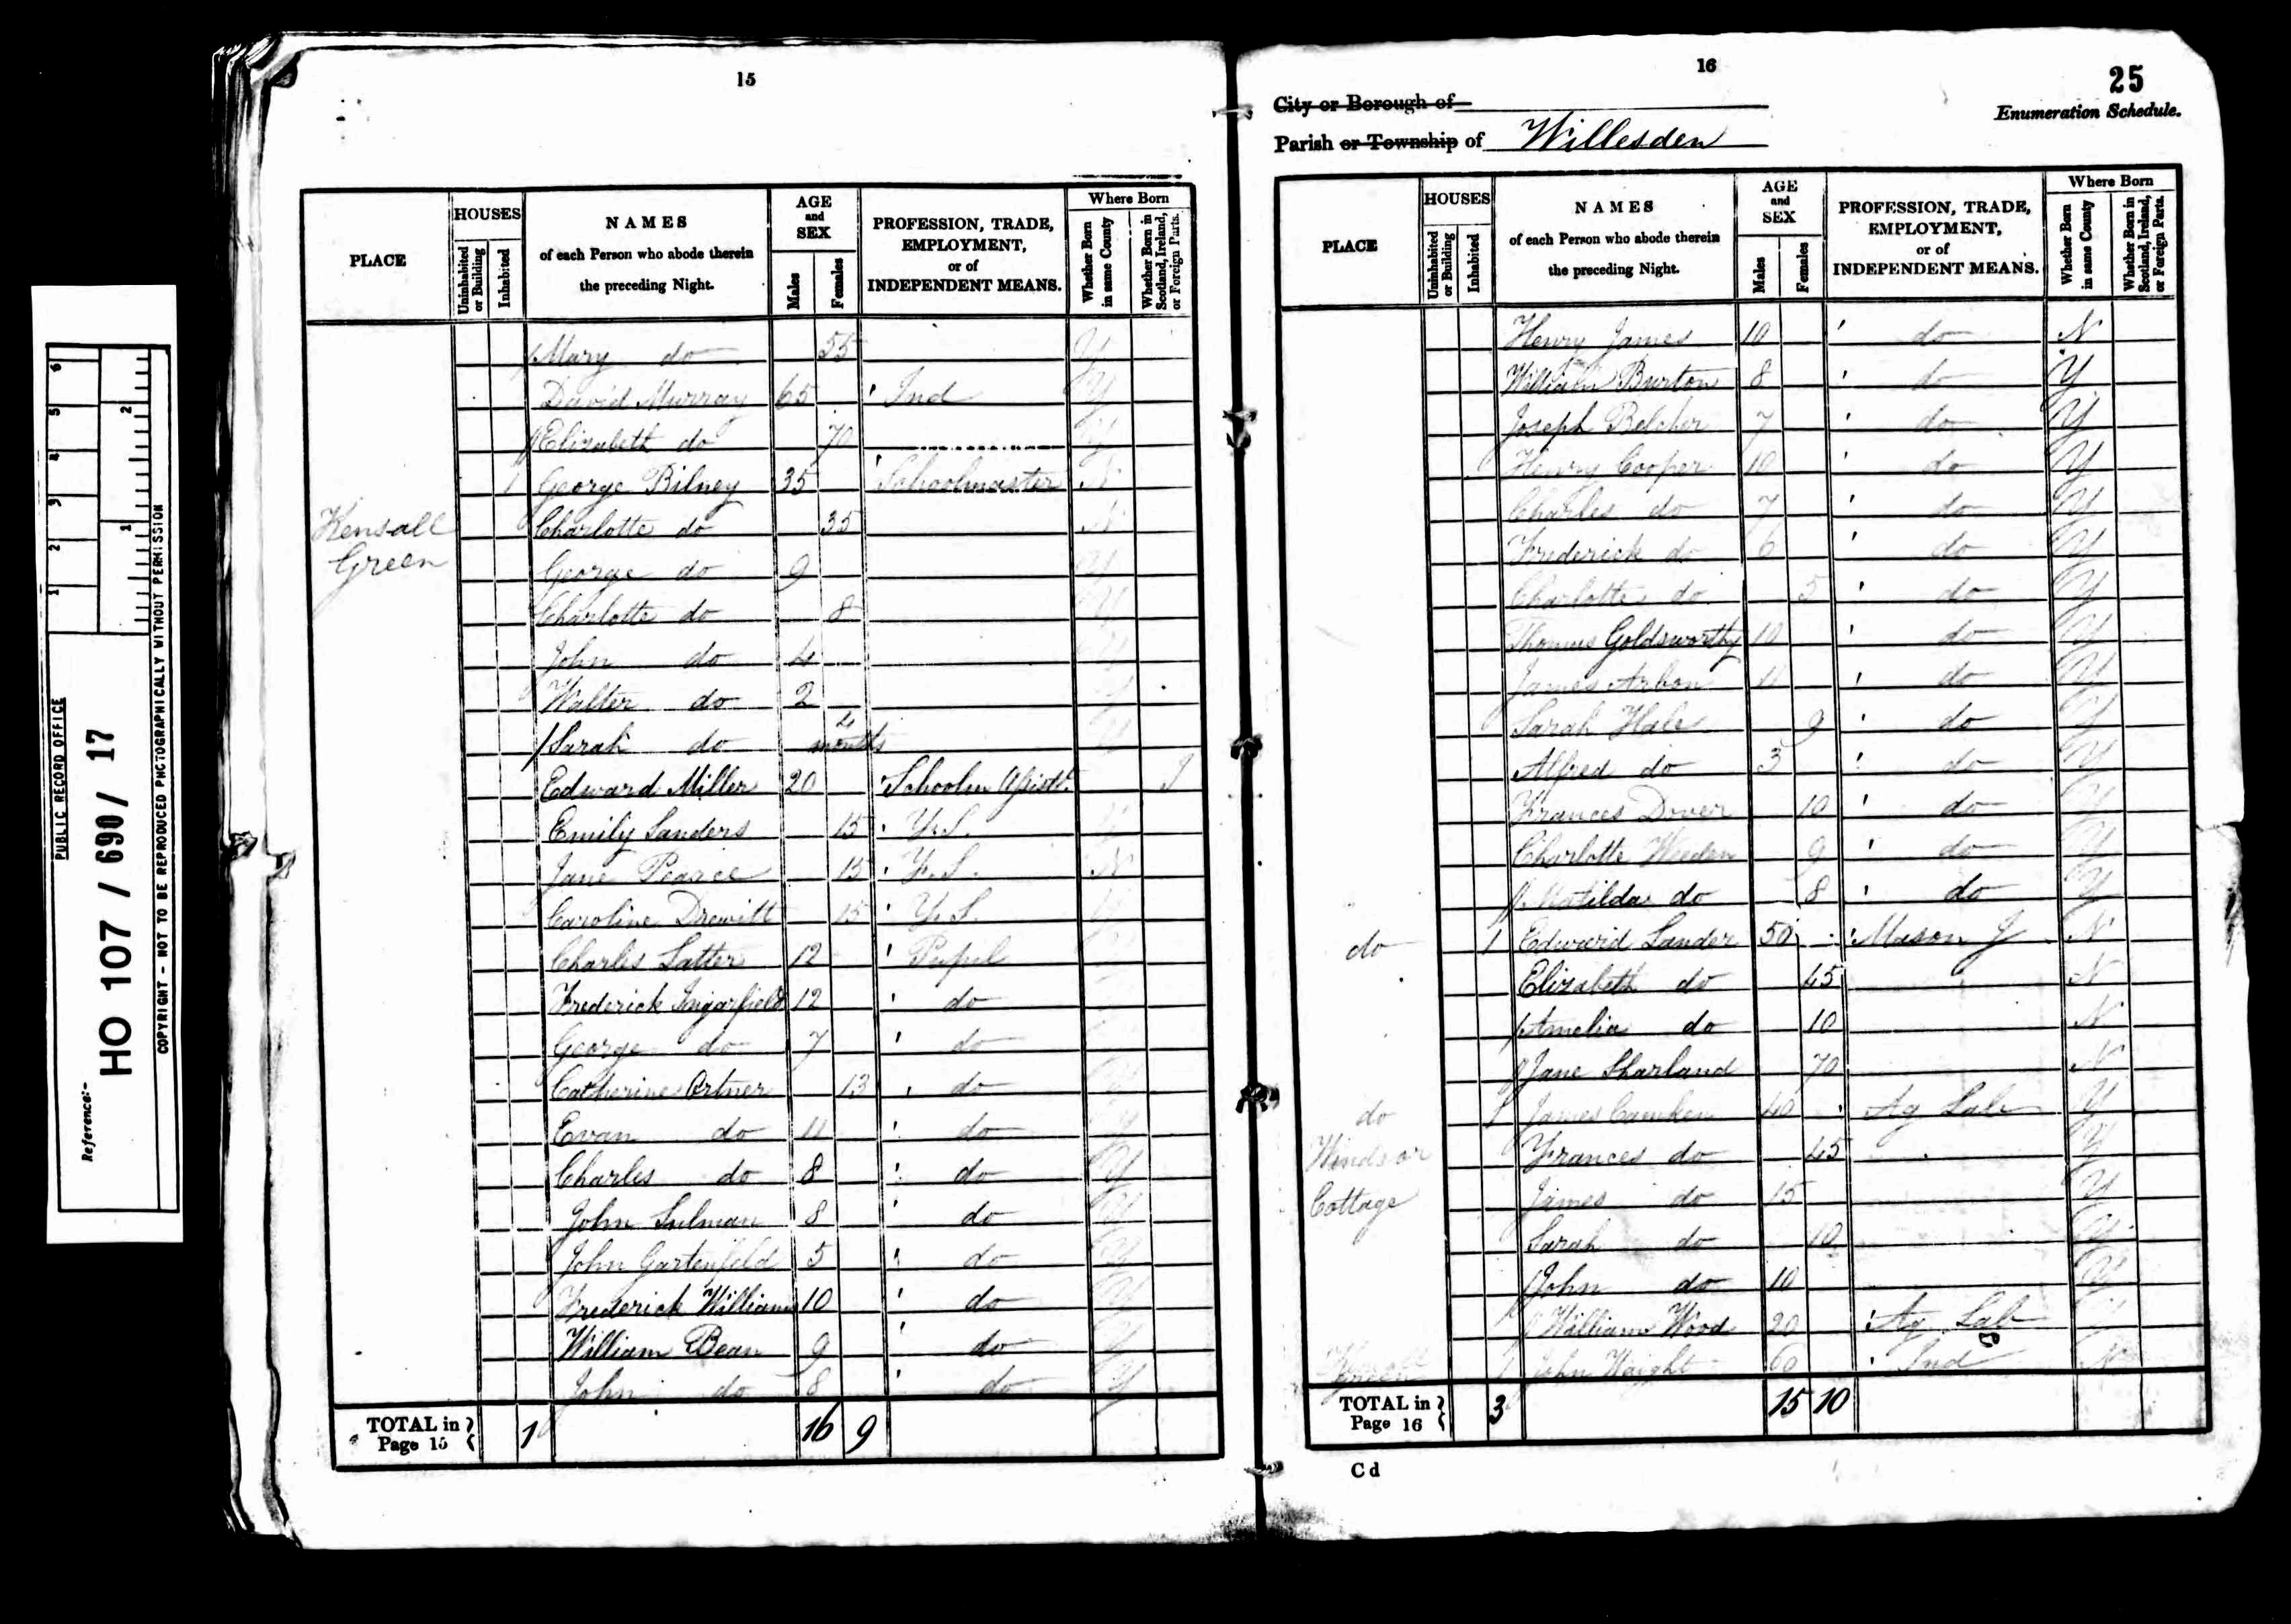 PUBLIC RECORD OFFICE
Reference:-
HO 107 / 690 / 17
COPYRIGHT - NOT TO BE REPRODUCED PHOTOGRAPHICALLY WITHOUT PERMISSION
1 2 3 4 5 6
1 2
15
PLACE
HOUSES
Uninhabited or Building
Inhabited
NAMES
of each Person who abode therein
the preceding Night.
AGE
and
SEX
Males
Females
PROFESSION, TRADE,
EMPLOYMENT,
or of
INDEPENDENT MEANS.
Where Born
Whether Born in same County
Whether Born in Scotland, Ireland, or Foreign Parts.
Mary do 55 Y
David Murray 65 Ind Y
Elizabeth do 70 Y
1 George Bilney 35 Schoolmaster N
Kensall
Green
Charlotte do 35 N
George do 9 Y
Charlotte do 8 Y
John do 4 Y
Walter do 2 Y
Sarah do 4 months Y
Edward Miller 20 Schoolm Assistt. I
Emily Sanders 15 F.S. Y
Jane Pearce 15 F.S. N
Caroline Drewitt 15 F.S. Y
Charles Latter 12 Pupil
Frederick Ingarfield 12 do
George do 7 do
Catherine Ortner 13 do Y
Evan do 11 do Y
Charles do 8 do Y
John Sulman 8 do Y
John Gartenfeld 5 do Y
Frederick Williams 10 do Y
William Bean 9 do Y
John do 8 do Y
TOTAL in Page 15 1 16 9
16
25
City or Borough of
Enumeration Schedule.
Parish or Township of Willesden
PLACE
HOUSES
Uninhabited or Building
Inhabited
NAMES
of each Person who abode therein
the preceding Night.
AGE
and
SEX
Males
Females
PROFESSION, TRADE,
EMPLOYMENT,
or of
INDEPENDENT MEANS.
Where Born
Whether Born in same County
Whether Born in Scotland, Ireland, or Foreign Parts.
Henry James 10 do N
William Burton 8 do Y
Joseph Belcher 7 do Y
Henry Cooper 10 do Y
Charles do 7 do Y
Frederick do 6 do Y
Charlotte do 5 do Y
Thomas Goldsworthy 10 do Y
James Arbon 11 do Y
Sarah Hale 9 do Y
Alfred do 3 do Y
Frances Dover 10 do Y
Charlotte Weeden 9 do Y
Matilda do 8 do Y
do 1 Edward Lander 50 Mason J N
Elizabeth do 45 N
Amelia do 10 N
Jane Sharland 70 N
do 1 James 40 Ag Lab Y
Windsor
Cottage
Frances do 45 Y
James do 15 Y
Sarah do 10 Y
John do 10 Y
William Wood 20 Ag Lab
1 John Waight 60 Ind N
TOTAL in Page 16 3 15 10
C d